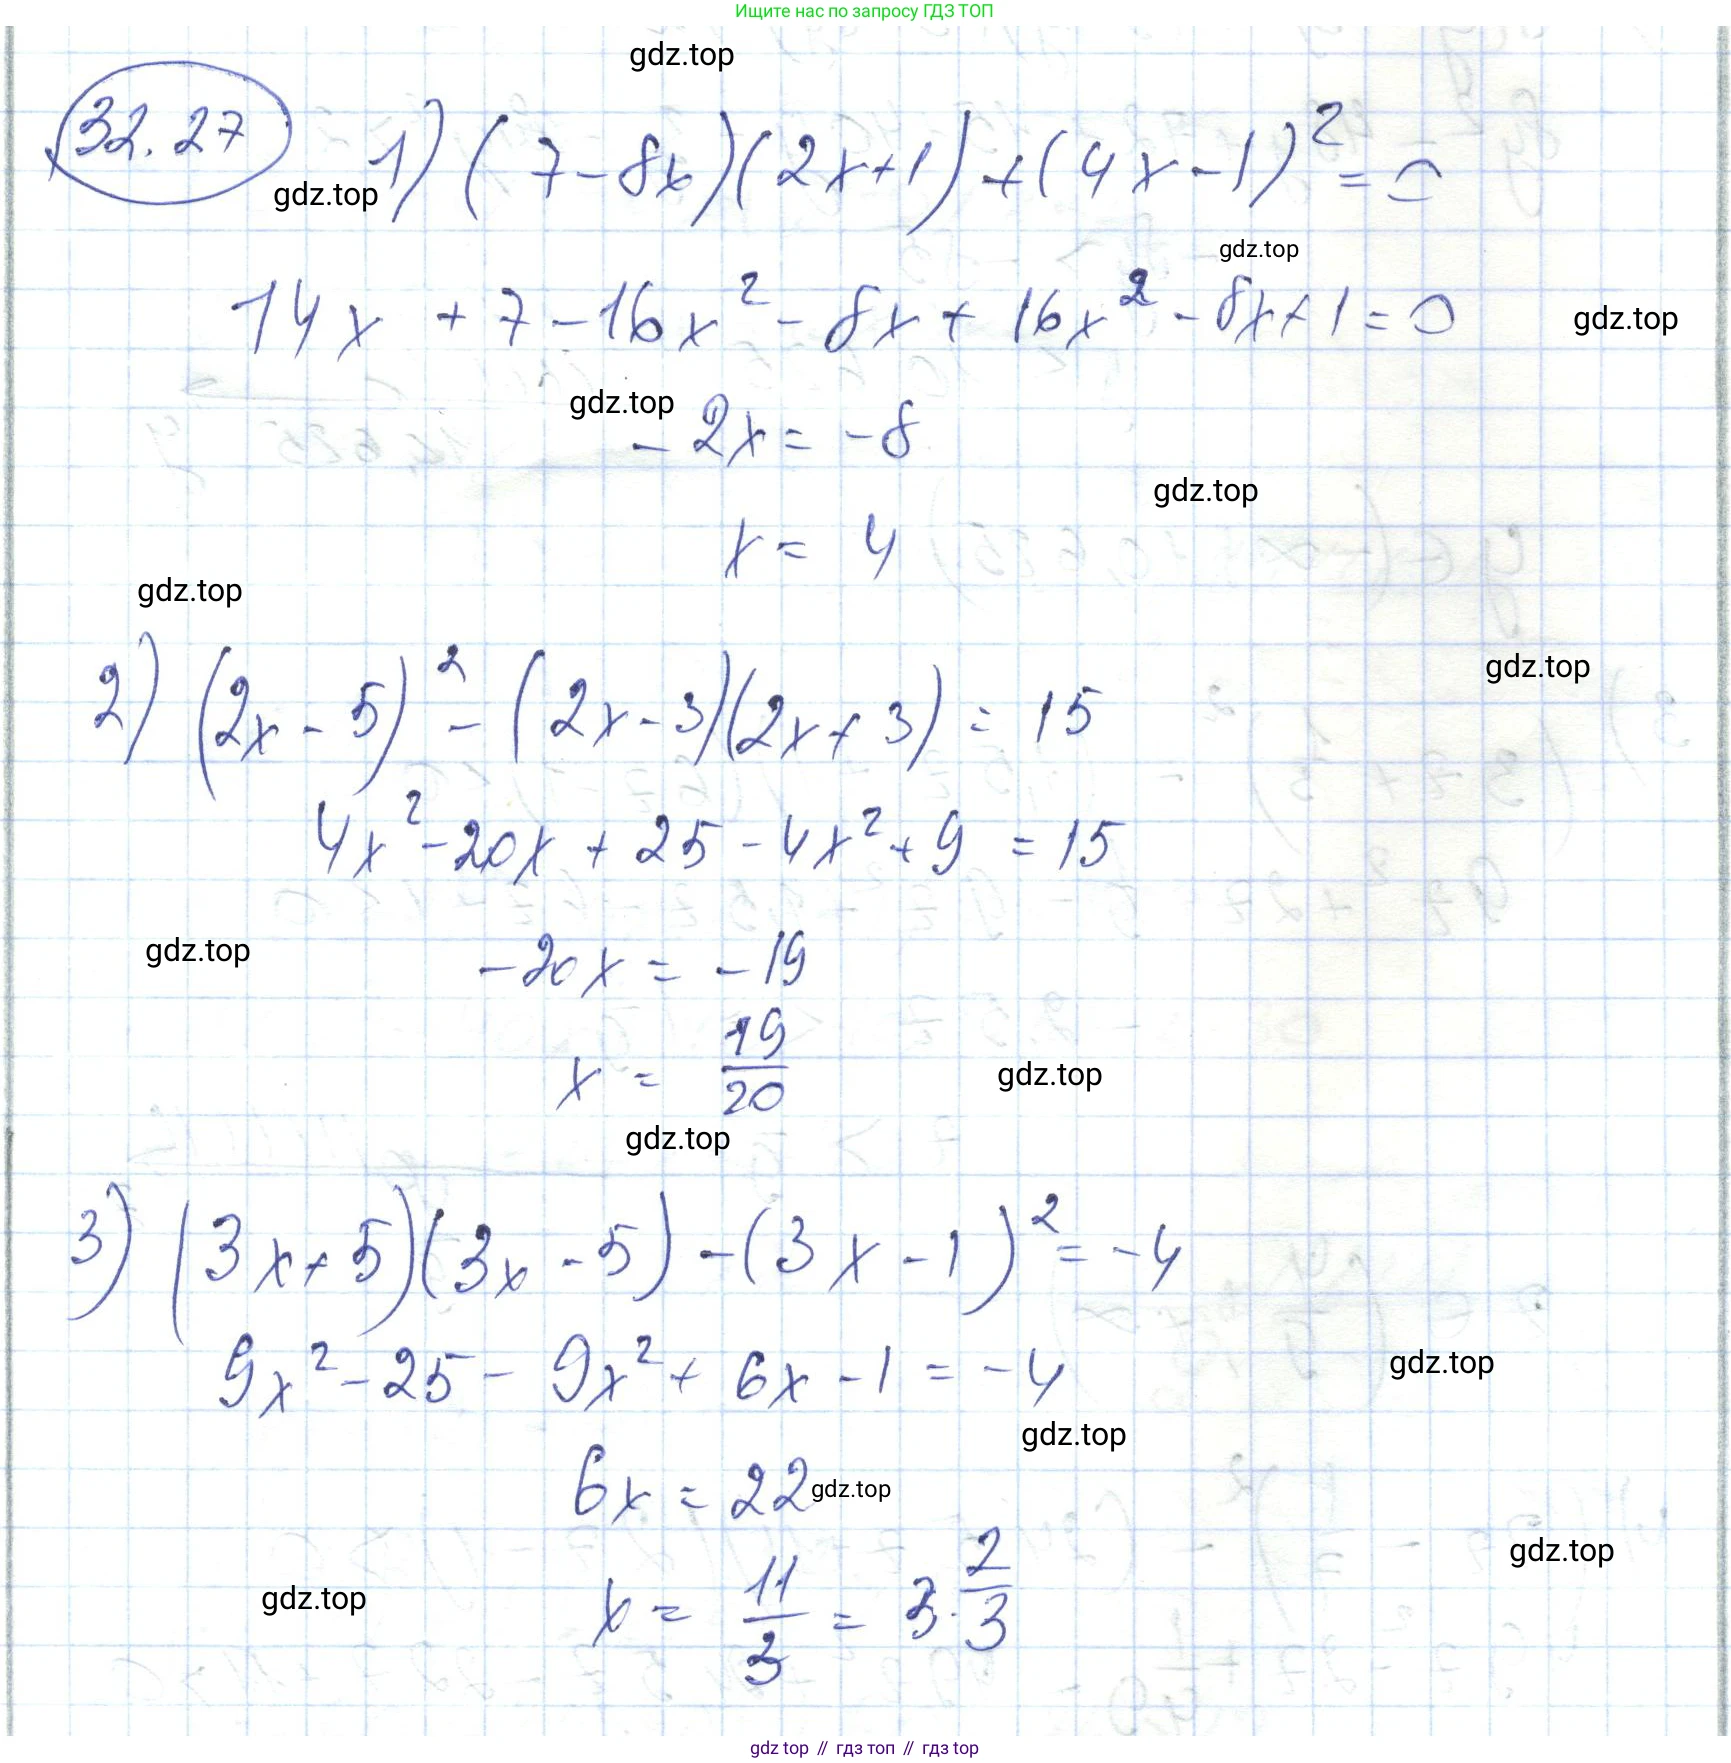 Ищите нас по запросу ГДЗ ТОП
gdz.top
32.27
1) (7-8x)(2x+1)+(4x-1)²=0
gdz.top
gdz.top
14x+7-16x²-8x+16x²-8x+1=0
gdz.top
gdz.top
-2x=-8
gdz.top
x=4
gdz.top
2) (2x-5)²-(2x-3)(2x+3)=15
gdz.top
4x²-20x+25-4x²+9=15
gdz.top
-20x=-19
x=19/20
gdz.top
gdz.top
3) (3x+5)(3x-5)-(3x-1)²=-4
9x²-25-9x²+6x-1=-4
gdz.top
gdz.top
6x=22
gdz.top
gdz.top
x=11/3=3 2/3
gdz.top
gdz top // гдз топ // гдз top